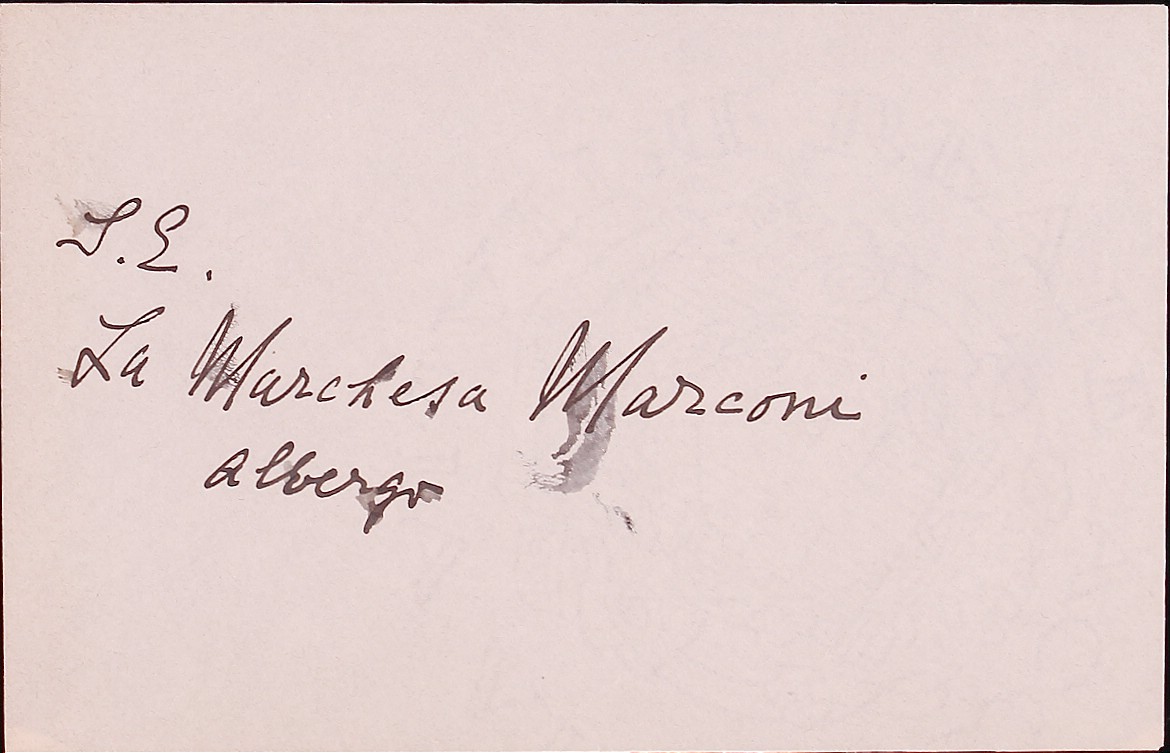 S.E.
La Marchesa Marconi
albergo